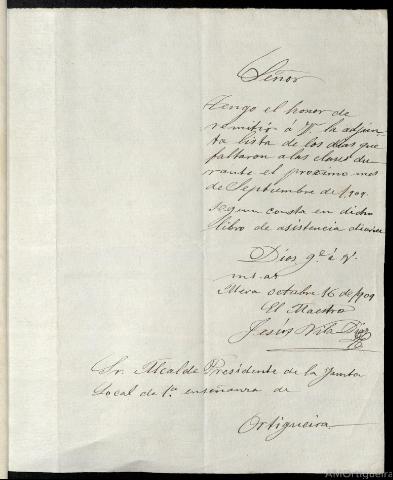 Señor
Tengo el honor de
remitir á V. la adjun-
ta lista de los dias que
faltaron a las clases du-
rante el proximo mes
de Septiembre de 1909
segun consta en dicho
libro de asistencia diaria
Dios g.e á V.
m.s a.s
Mera octubre 16 de 1909
El Maestro
Jesús Vila Diaz
Sr. Alcalde Presidente de la Junta
Local de 1ª enseñanza de
Ortigueira
AMOrtigueira